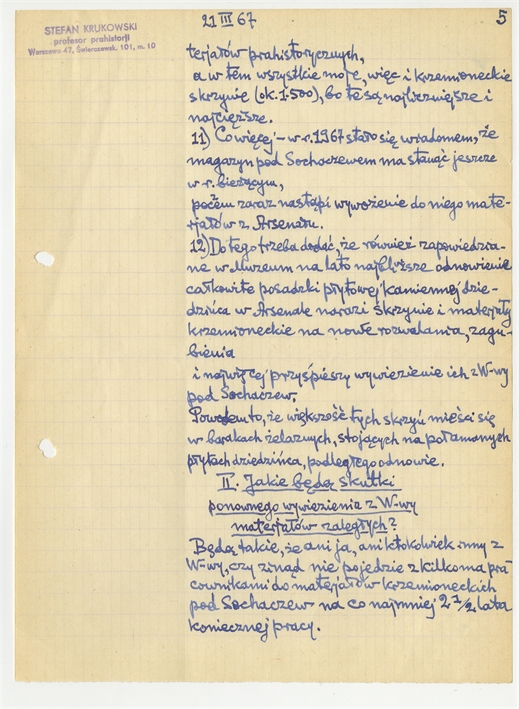 21 III 67
5
STEFAN KRUKOWSKI
profesor prahistorji
Warszawa 47, Świerszewsk. 101, m. 10
terjałów prahistorycznych,
a w tem wszystkie moje, więc i krzemioneckie
skrzynie (ok. 1.500), bo te są najliczniejsze i
najcięższe.
11) Co więcej – w r. 1967 stało się wiadomem, że
magazyn pod Sochaczewem ma stanąć jeszcze
w r. bieżącym,
poczem zaraz nastąpi wywożenie do niego mate-
rjałów z Arsenału.
12) Do tego trzeba dodać, że również zapowiedzia-
ne w Muzeum na lato najbliższe odnowienie
całkowite posadzki płytowej kamiennej dzie-
dzińca w Arsenale narazi skrzynie i materjały
krzemioneckie na nowe rozwalania, zagu-
bienia
i najwięcej przyśpieszy wywiezienie ich z W-wy
pod Sochaczew.
Powodem to, że większość tych skrzyń mieści się
w barakach żelaznych, stojących na połamanych
płytach dziedzińca, podległego odnowie.
II. Jakie będą skutki
ponownego wywiezienia z W-wy
materjałów zaległych?
Będą takie, że ani ja, ani ktokolwiek inny z
W-wy, czy zinąd nie pojedzie z kilkoma pra-
cownikami do materjałów krzemioneckich
pod Sochaczew na co najmniej 2 1/2 lata
koniecznej pracy.